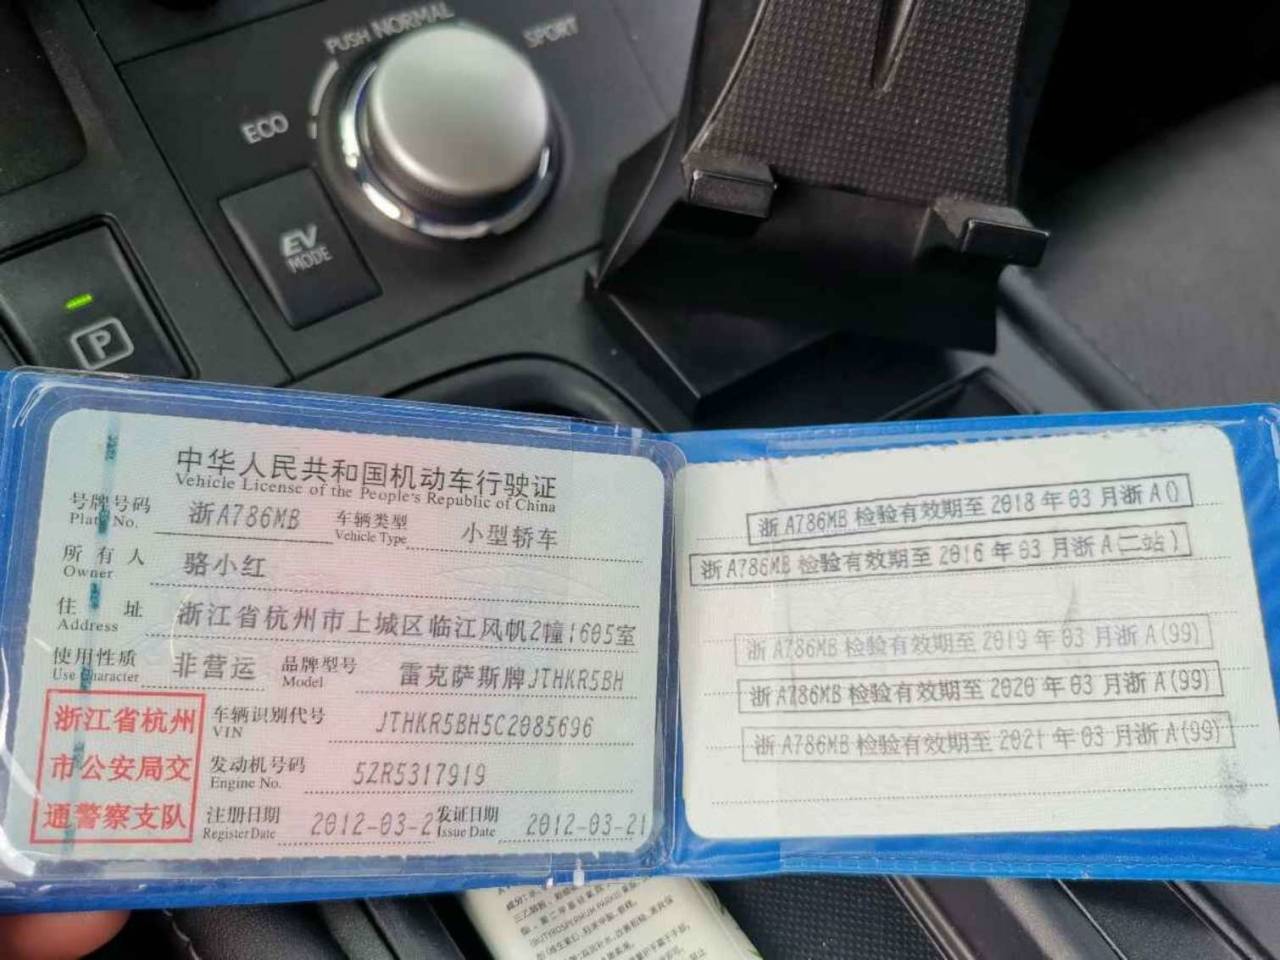 PUSH NORMAL
SPORT
ECO
EV
MODE
P
中华人民共和国机动车行驶证
Vehicle License of the People's Republic of China
号牌号码 浙A786MB 车辆类型 小型轿车
Plate No. Vehicle Type
所有人 骆小红
Owner
住址 浙江省杭州市上城区临江风帆2幢1605室
Address
使用性质 非营运 品牌型号 雷克萨斯牌JTHKR5BH
Use Character Model
浙江省杭州
市公安局交
通警察支队
车辆识别代号 JTHKR5BH5C2085696
VIN
发动机号码 5ZR5317919
Engine No.
注册日期 2012-03-2 发证日期 2012-03-21
Register Date Issue Date
浙A786MB 检验有效期至 2018 年 03 月浙A()
浙A786MB 检验有效期至 2016 年 03 月浙A(二站)
浙A786MB 检验有效期至 2019 年 03 月浙A(99)
浙A786MB 检验有效期至 2020 年 03 月浙A(99)
浙A786MB 检验有效期至 2021 年 03 月浙A(99)